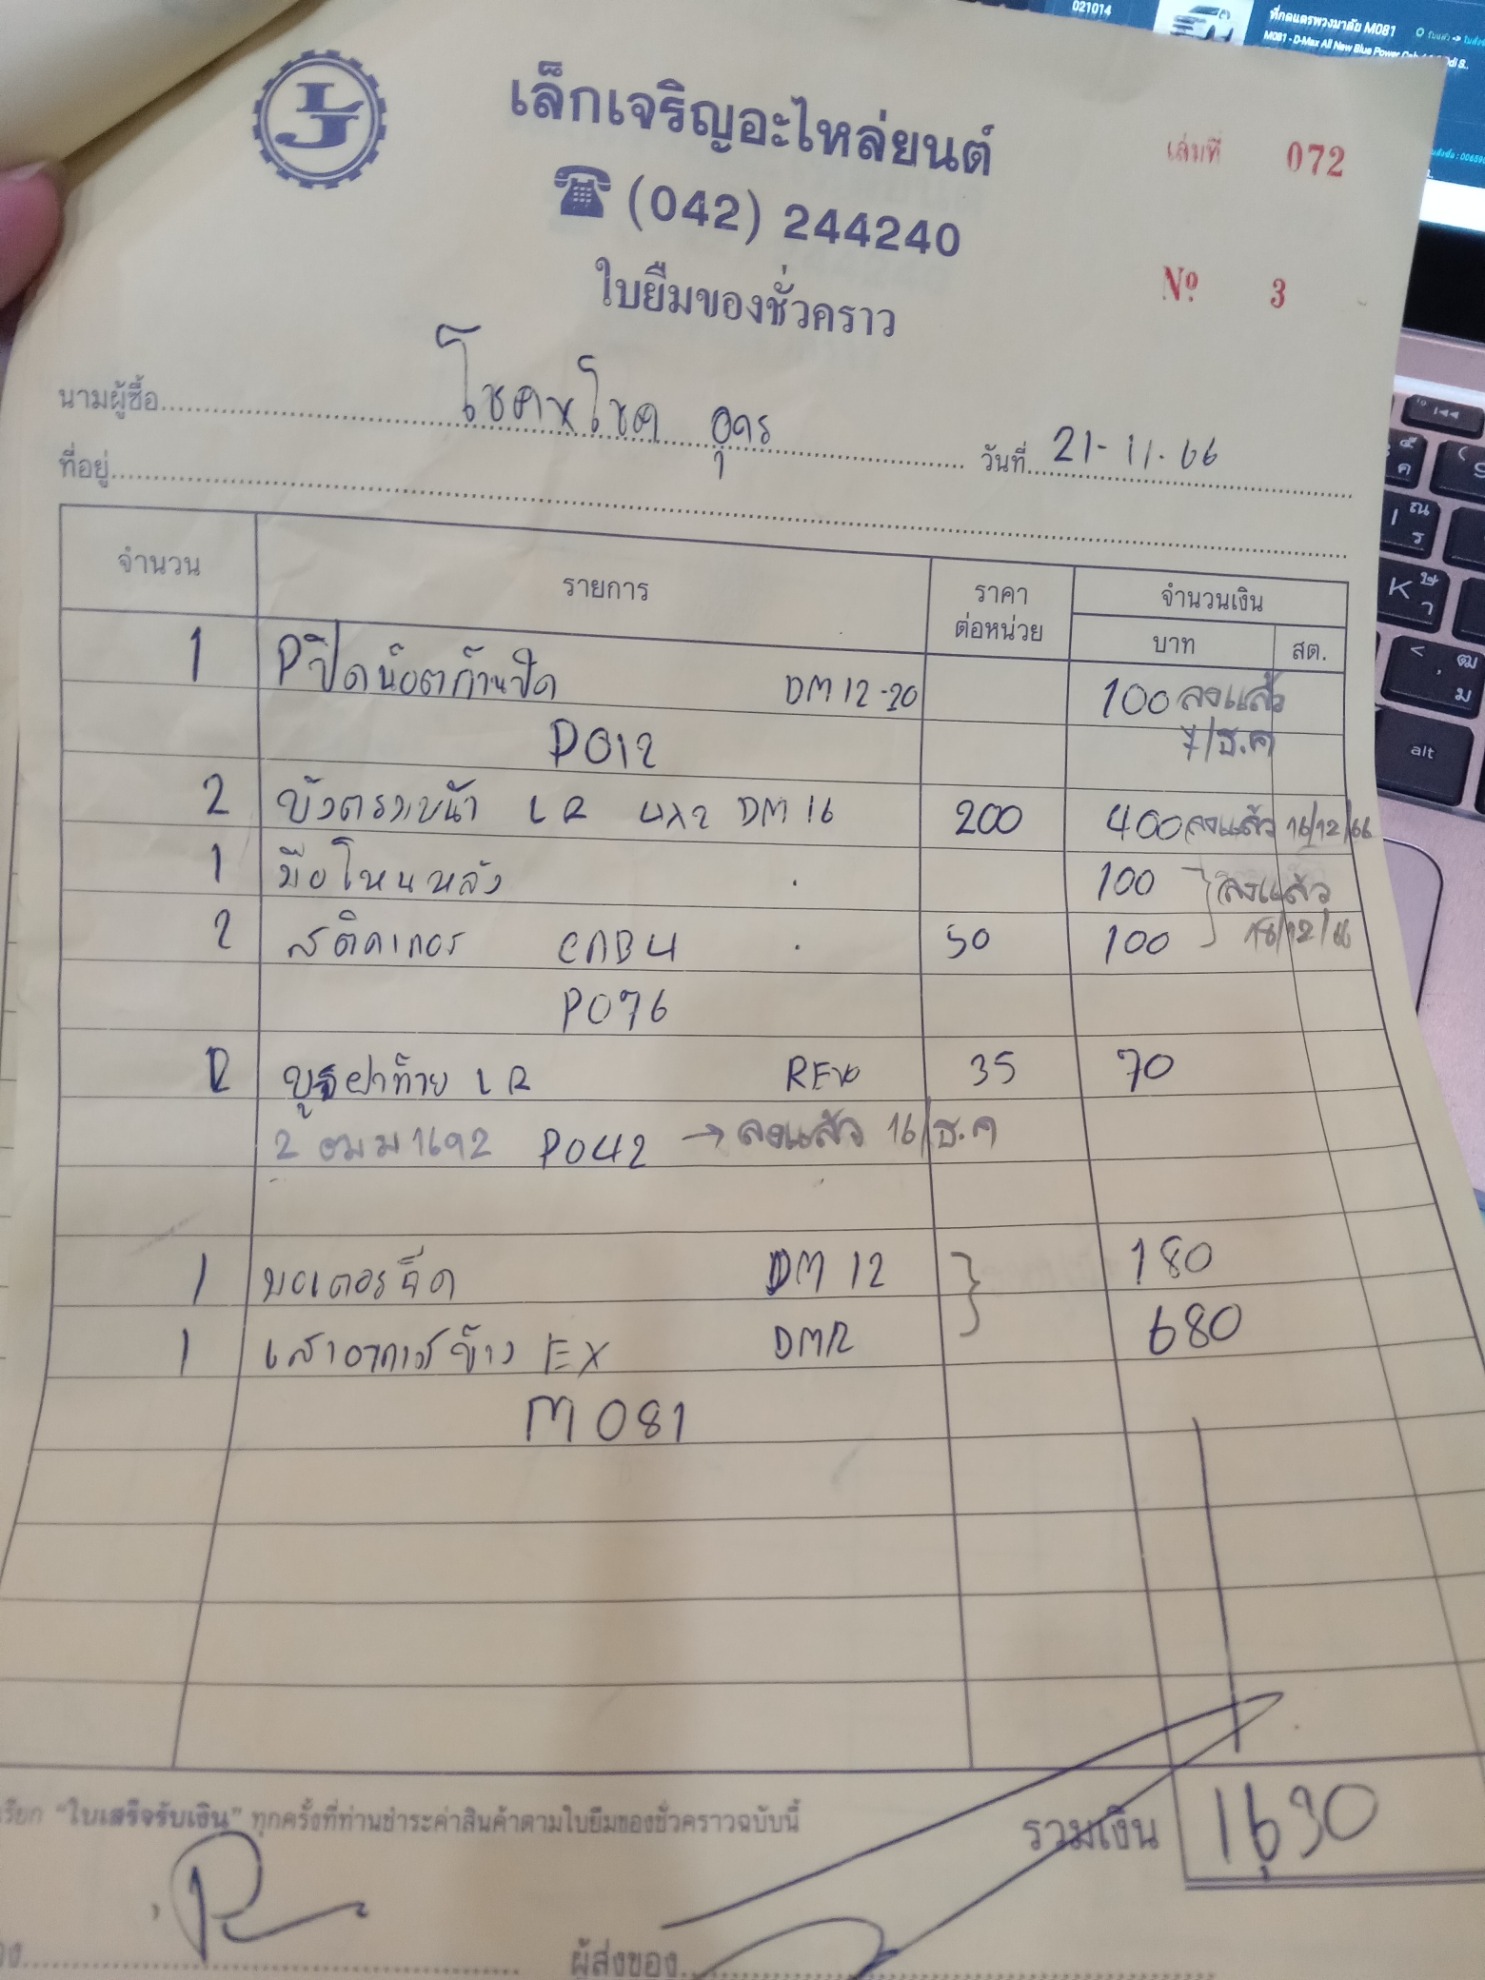 021014
ที่กดแตรพวงมาลัย M081
M081 - D-Max All New Blue Power Cab
LJ
เล็กเจริญอะไหล่ยนต์
เล่มที่ 072
(042) 244240
ใบยืมของชั่วคราว
Nº 3
นามผู้ซื้อ โชคนำโชค อุดร วันที่ 21-11-66
ที่อยู่
จำนวน รายการ ราคาต่อหน่วย จำนวนเงิน
บาท สต.
1 Pปิดน๊อตก้านปัด DM12-20 100 ลงแล้ว
D012 7/ธ.ค
2 บังตรงหน้า LR 4x2 DM16 200 400 ลงแล้ว 16/12/66
1 มือโหนหลัง . 100 ลงแล้ว
2 สติคเกอร์ CAB4 . 50 100 16/12/66
P076
2 บูธฝาท้าย LR REVO 35 70
2 ฒม 1692 P042 → ลงแล้ว 16/ธ.ค
1 มอเตอร์ฉีด DM12 180
1 เสาอากาศข้าง EX DM12 680
M081
เรียก "ใบเสร็จรับเงิน" ทุกครั้งที่ท่านชำระค่าสินค้าตามใบยืมของชั่วคราวฉบับนี้
รวมเงิน 1630
ผู้ส่งของ
alt